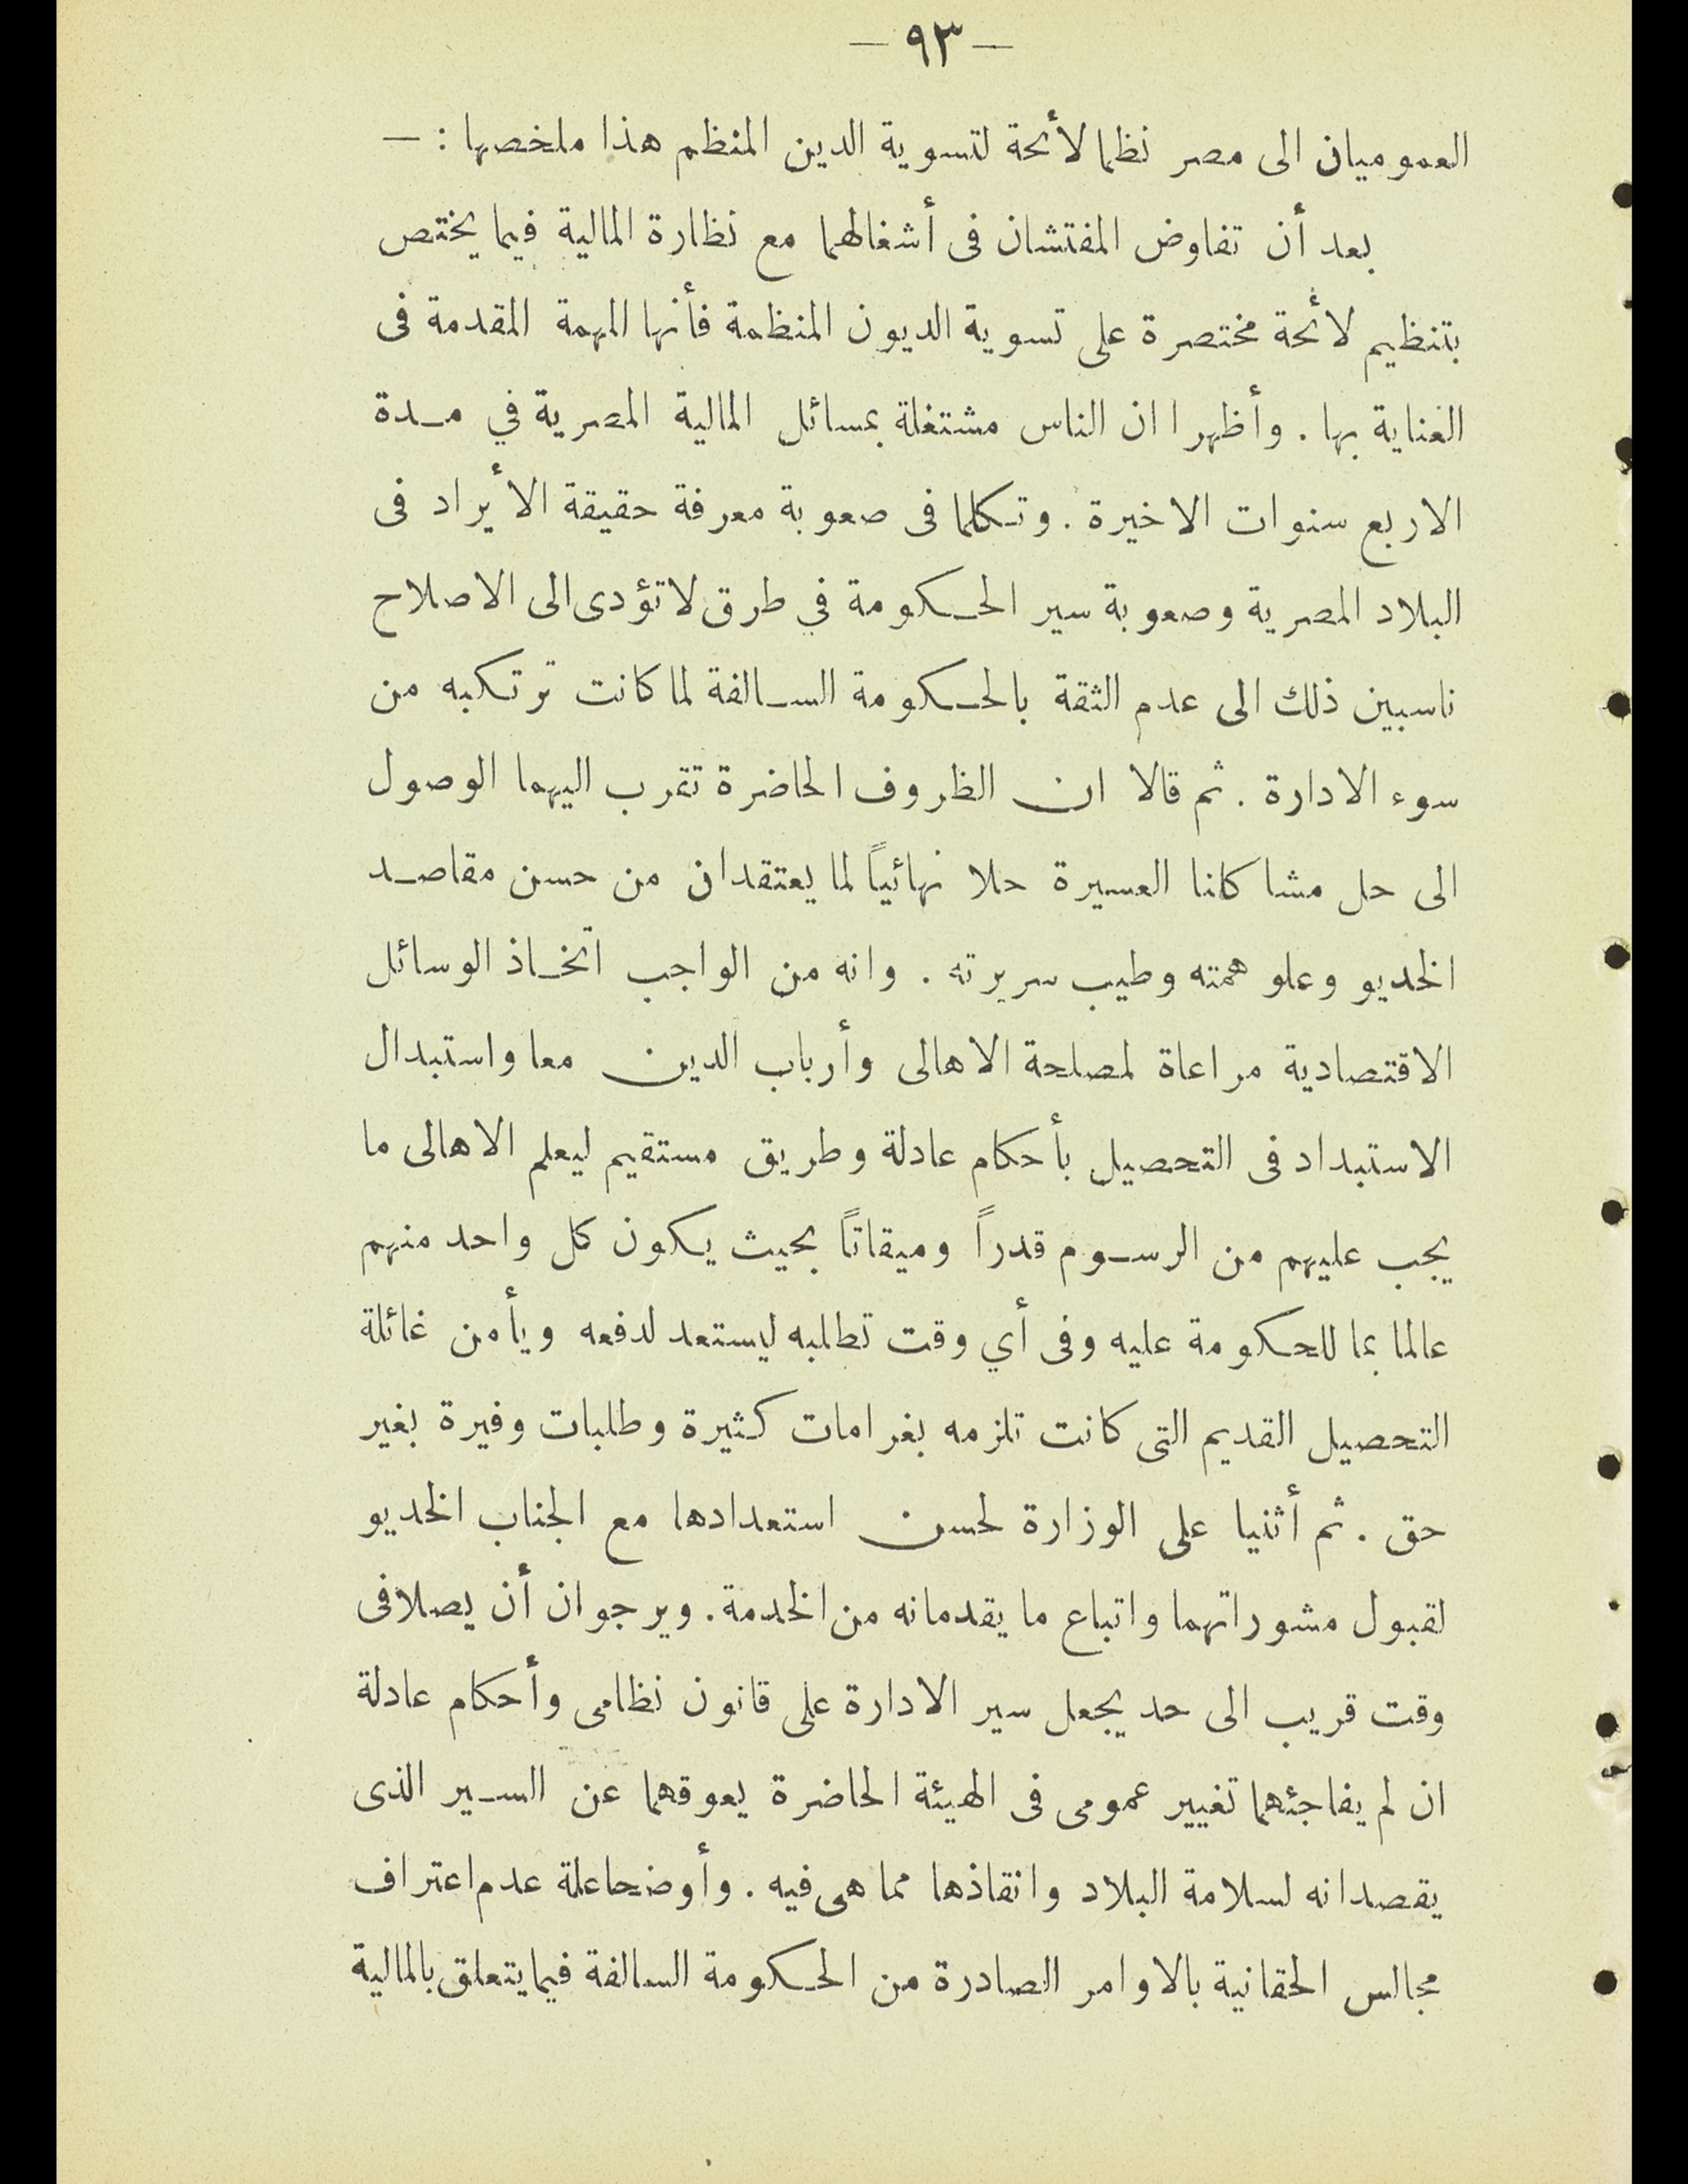 — ٩٣ —
العموميان الى مصر نظما لأئحة لتسوية الدين المنظم هذا ملخصها : —
بعد أن تفاوض المفتشان فى أشغالهما مع نظارة المالية فيما يختص
بتنظيم لائحة مختصرة على تسوية الديون المنظمة فأنها المهمة المقدمة فى
العناية بها . وأظهرا ان الناس مشتغلة بمسائل المالية المصرية في مـدة
الاربع سنوات الاخيرة . وتكلما فى صعوبة معرفة حقيقة الأيراد فى
البلاد المصرية وصعوبة سير الحـكومة في طرق لا تؤدى الى الاصلاح
ناسبين ذلك الى عدم الثقة بالحـكومة السـالفة لما كانت ترتكبه من
سوء الادارة . ثم قالا ان الظروف الحاضرة تقرب اليهما الوصول
الى حل مشاكلنا العسيرة حلا نهائياً لما يعتقدان من حسن مقاصـد
الخديو وعلو همته وطيب سريرته . وانه من الواجب اتخـاذ الوسائل
الاقتصادية مراعاة لمصلحة الاهالى وأرباب الدين معا واستبدال
الاستبداد فى التحصيل بأحكام عادلة وطريق مستقيم ليعلم الاهالى ما
يجب عليهم من الرسـوم قدراً وميقاتاً بحيث يكون كل واحد منهم
عالما بما للحكومة عليه وفى أي وقت تطلبه ليستعد لدفعه ويأمن غائلة
التحصيل القديم التى كانت تلزمه بغرامات كثيرة وطلبات وفيرة بغير
حق . ثم أثنيا على الوزارة لحسن استعدادها مع الجناب الخديو
لقبول مشوراتهما واتباع ما يقدمانه من الخدمة . ويرجوان أن يصلا فى
وقت قريب الى حد يجعل سير الادارة على قانون نظامى وأحكام عادلة
ان لم يفاجئهما تغيير عمومى فى الهيئة الحاضرة يعوقهما عن السـير الذى
يقصدانه لسلامة البلاد وانقاذها مما هى فيه . وأوضحا علة عدم اعتراف
مجالس الحقانية بالاوامر الصادرة من الحـكومة السالفة فيما يتعلق بالمالية